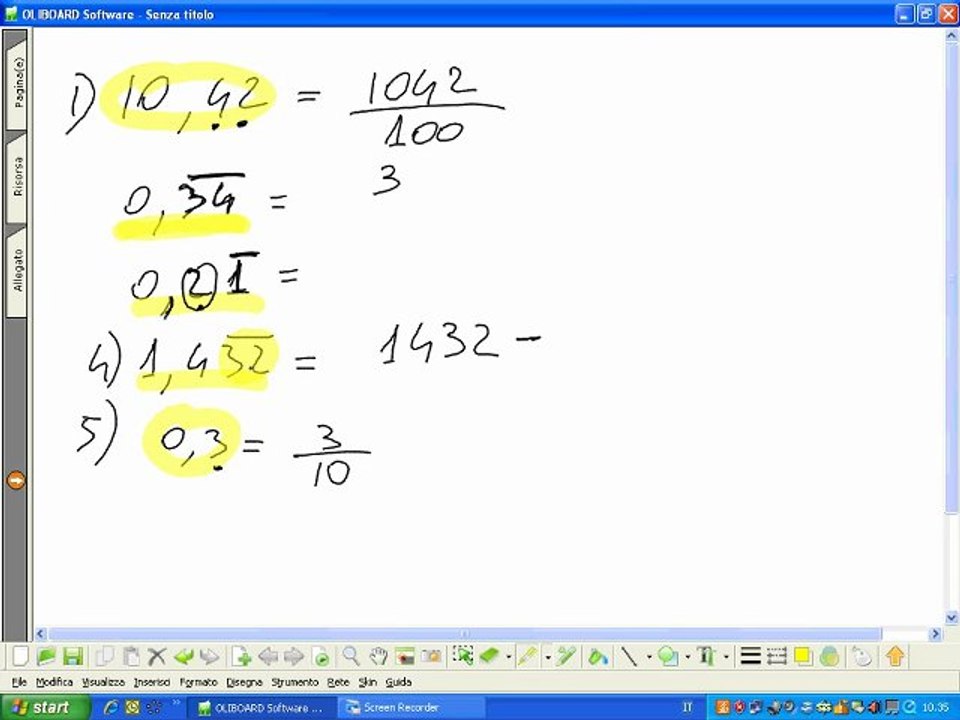 OLIBOARD Software - Senza titolo
Pagina(e)
Risorsa
Allegato
1) 10,42 = 1042/100
0,3̅4̅ = 3
0,21̅ =
4) 1,43̅2̅ = 1432 -
5) 0,3 = 3/10
File Modifica Visualizza Inserisci Formato Disegna Strumento Rete Skin Guida
start OLIBOARD Software ... Screen Recorder IT 10.35